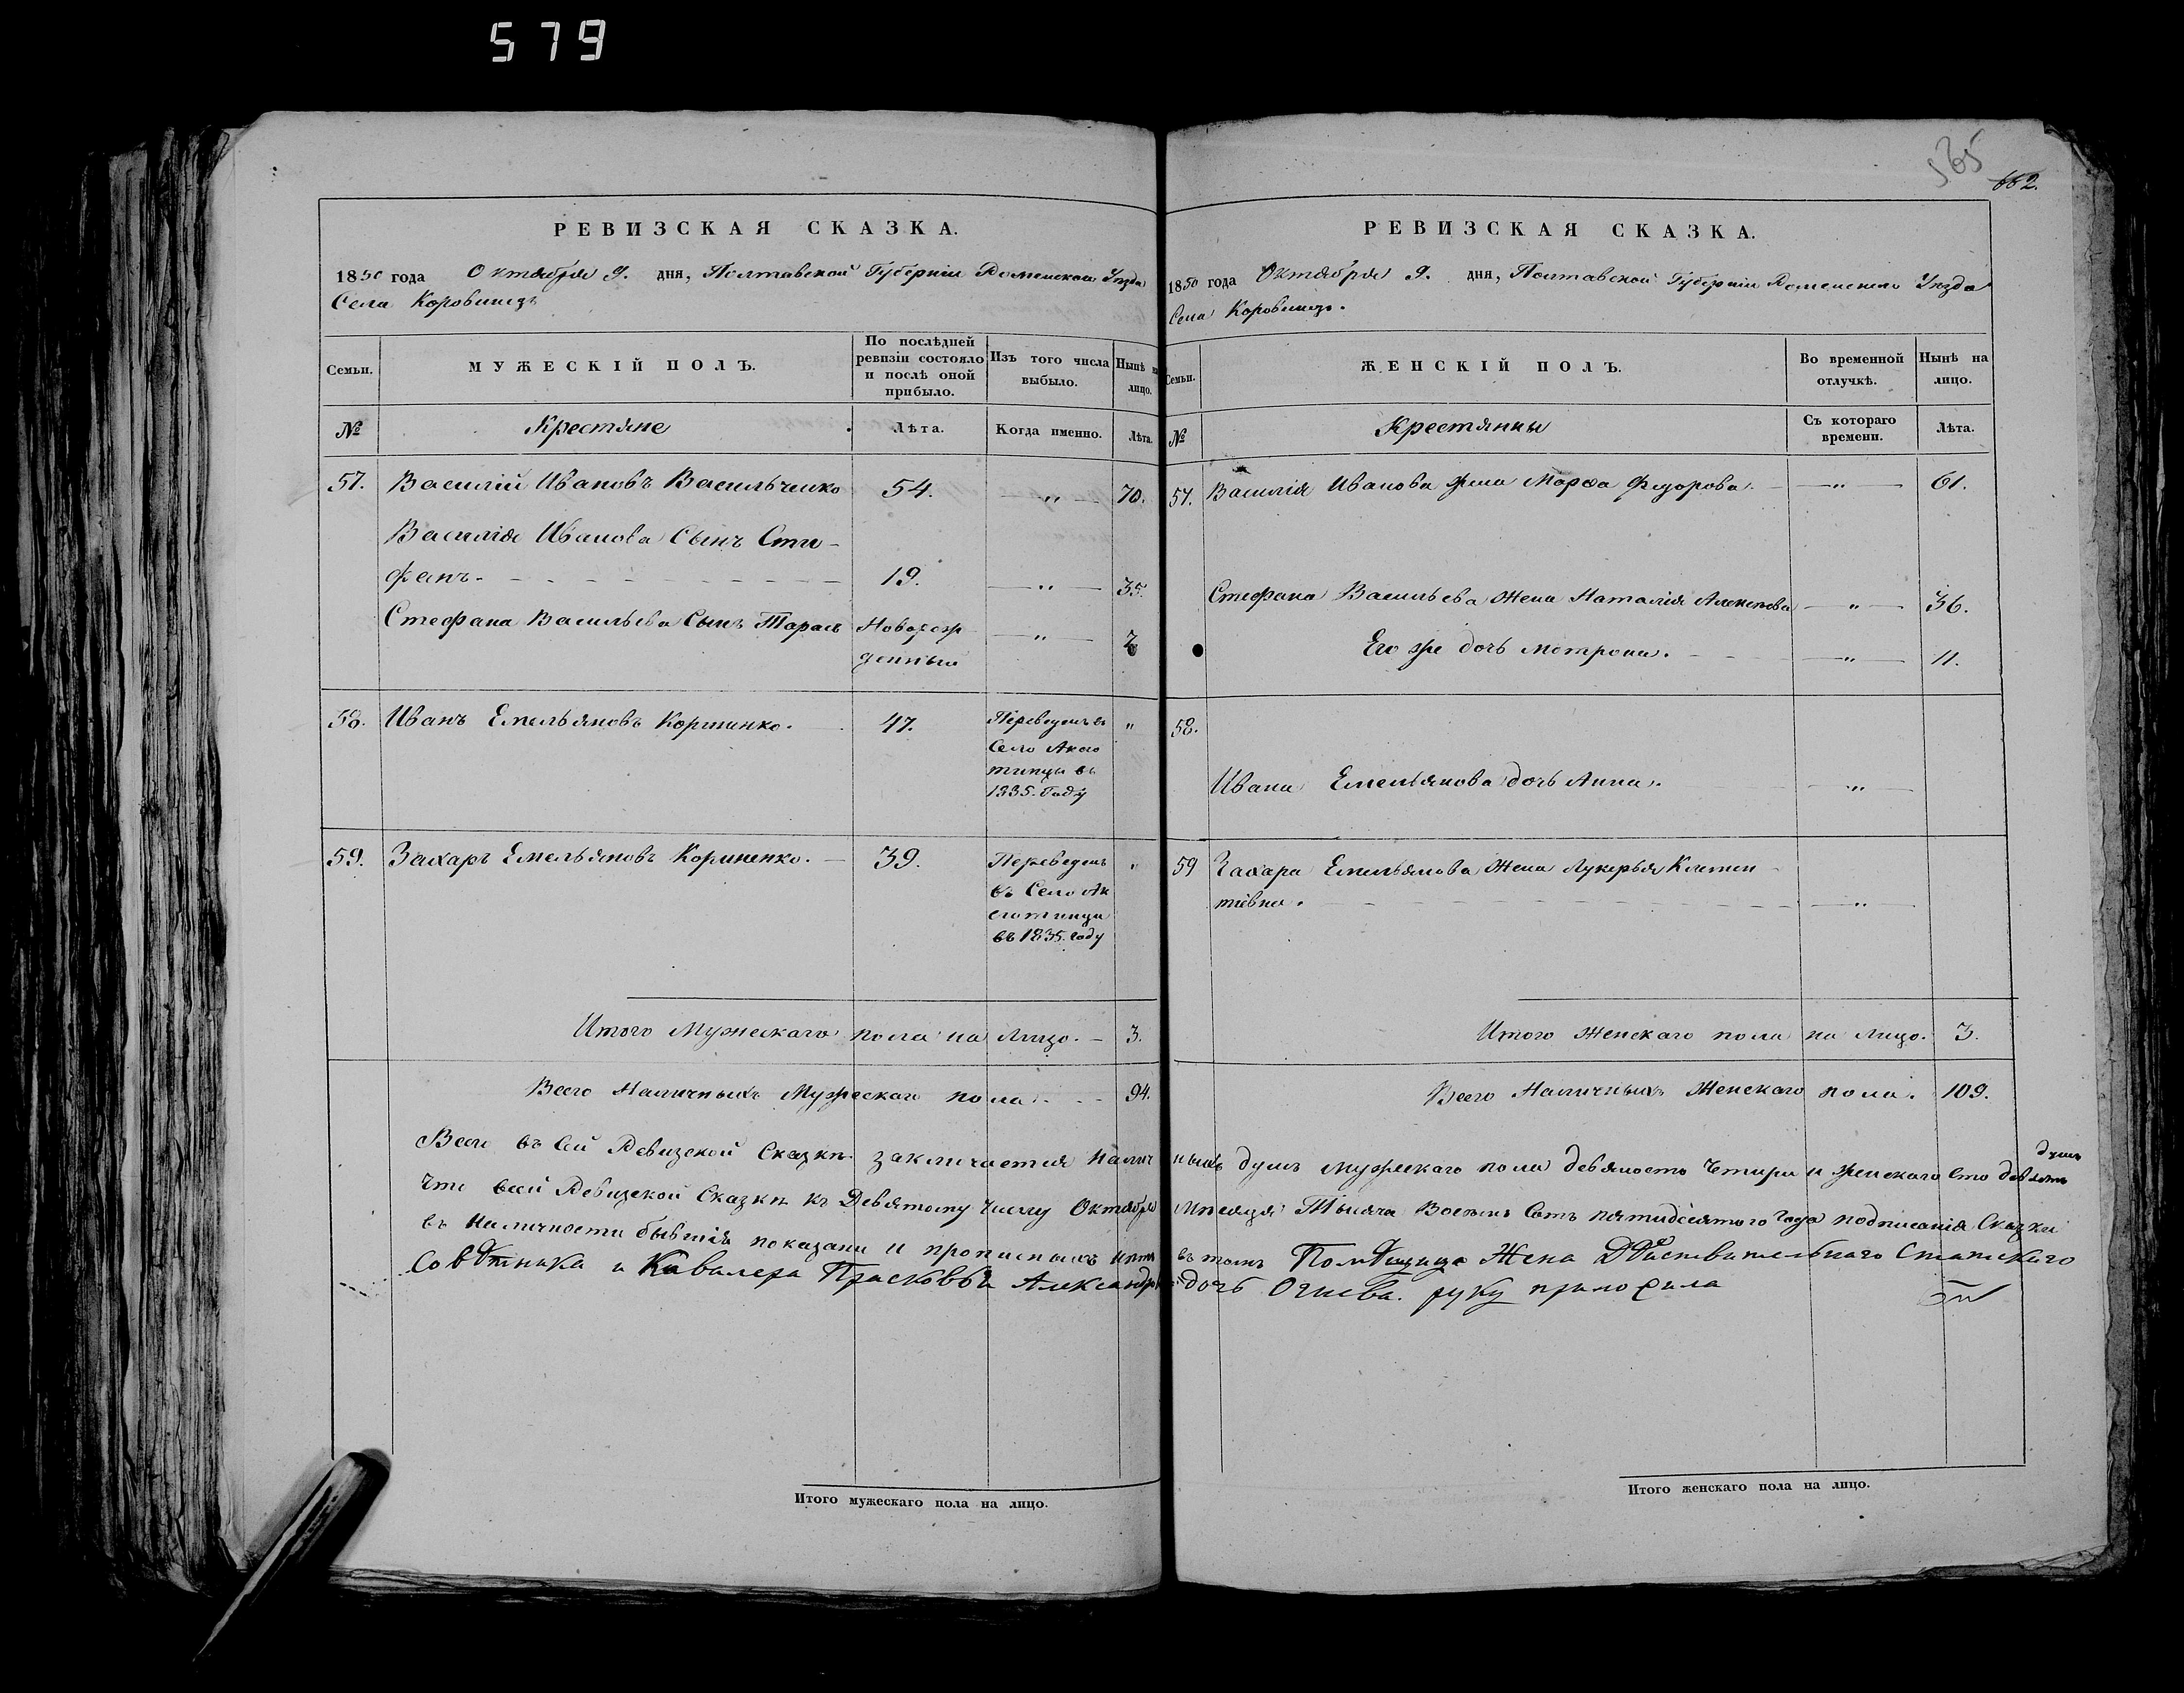 579
565
662.
РЕВИЗСКАЯ СКАЗКА.
1850 года Октября 9. дня, Полтавской Губерніи Роменскаго Уѣзда
Села Коровинецъ
Семьи.
МУЖЕСКІЙ ПОЛЪ.
По послѣдней
ревизіи состояло
и послѣ оной
прибыло.
Изъ того числа
выбыло.
Нынѣ на
лицо.
№
Крестяне
Лѣта.
Когда именно.
Лѣта.
57. Василій Ивановъ Васильченко 54. — „ — 70.
Василія Иванова Сынъ Сте-
фанъ. 19. — „ — 35.
Стефана Васильева Сынъ Тарасъ Новорож
денный — „ — 2
58. Иванъ Емельяновъ Коршенко. 47. Переведенъ въ „
Село
въ
1835. Году
59. Захаръ Емельяновъ Коршенко. — 39. Переведенъ „
въ Село
въ 1835. Году
Итого Мужескаго пола на Лицо. — 3.
Всего Наличныхъ Мужескаго пола. 94.
РЕВИЗСКАЯ СКАЗКА.
1850 года Октября 9. дня, Полтавской Губерніи Роменскаго Уѣзда
Села Коровинецъ.
Семьи.
ЖЕНСКІЙ ПОЛЪ.
Во временной
отлучкѣ.
Нынѣ на
лицо.
№
Крестянки
Съ котораго
времени.
Лѣта.
57. Василія Иванова жена Марфа Федорова. — „ — 61.
Стефана Васильева Жена Наталія Алексѣева — „ — 36.
Его же дочь Мотрона. — „ — 11.
58.
Ивана Емельянова дочь Анна. — „ —
59 Захара Емельянова Жена Лукерья Климен
тіевна. — „ —
Итого Женскаго пола на Лицо. 3.
Всего Наличныхъ Женскаго пола. 109.
Всего въ Сей Ревизской Сказкѣ заключается Наличныхъ душъ мужескаго пола девяносто Четыри и женскаго сто девять душъ
Что въ сей Ревизской Сказкѣ къ Девятому Числу Октября Мѣсяца Тысяча Восемь Сотъ пятидесятого Года подписанія Сказки
въ Наличности бывшія показаны и прописныхъ нѣтъ въ томъ Помѣщица Жена Дѣйствительнаго Статскаго
Совѣтника и Кавалера Прасковья Александрова дочь руку приложила
Итого мужескаго пола на лицо.
Итого женскаго пола на лицо.